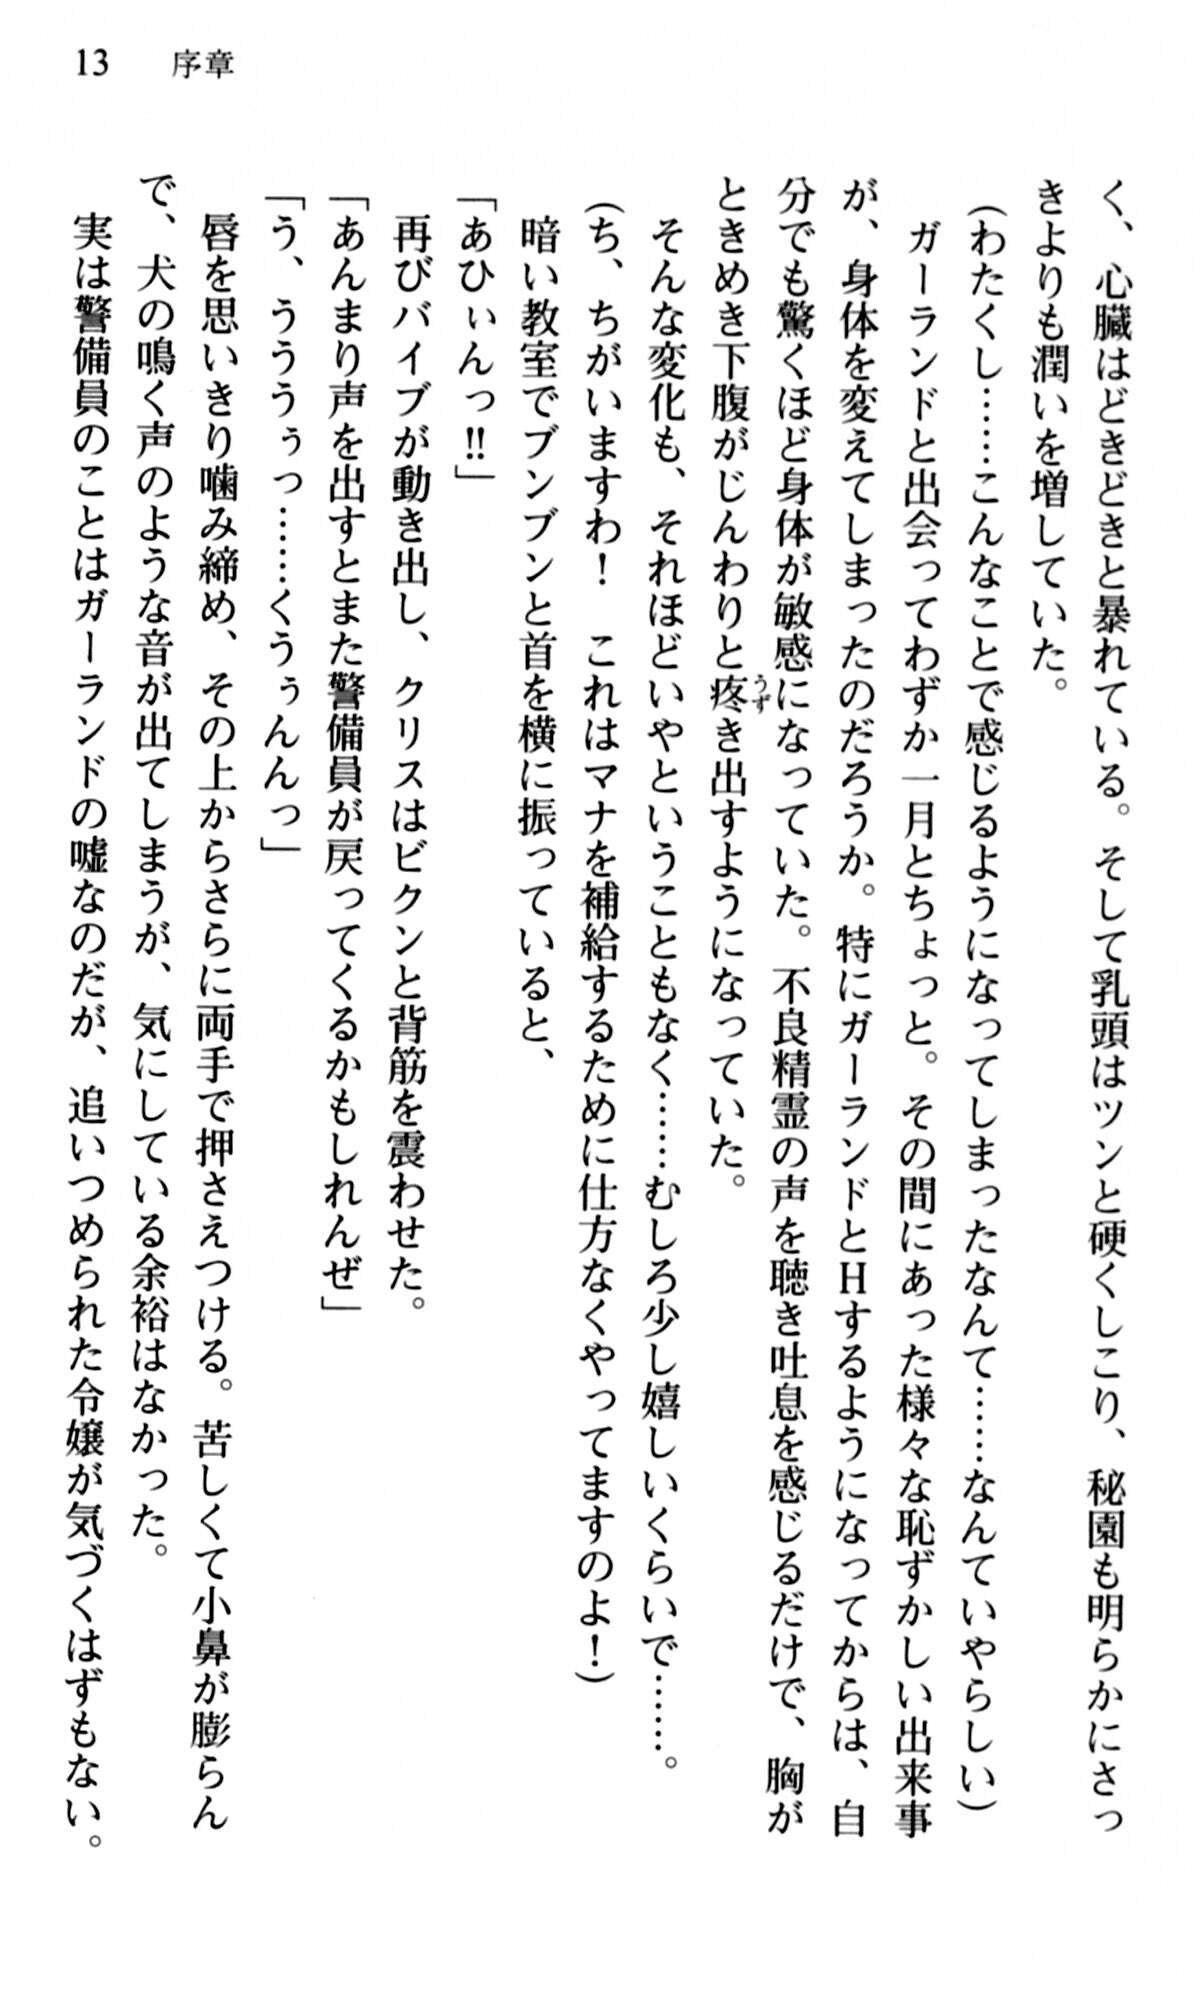 13 序章
く、心臓はどきどきと暴れている。そして乳頭はツンと硬くしこり、秘園も明らかにさっ
きよりも潤いを増していた。
（わたくし……こんなことで感じるようになってしまったなんて……なんていやらしい）
ガーランドと出会ってわずか一月とちょっと。その間にあった様々な恥ずかしい出来事
が、身体を変えてしまったのだろうか。特にガーランドとHするようになってからは、自
分でも驚くほど身体が敏感になっていた。不良精霊の声を聴き吐息を感じるだけで、胸が
ときめき下腹がじんわりと疼き出すようになっていた。
うず
そんな変化も、それほどいやということもなく……むしろ少し嬉しいくらいで……。
（ち、ちがいますわ！　これはマナを補給するために仕方なくやってますのよ！）
暗い教室でブンブンと首を横に振っていると、
「あひぃんっ‼」
再びバイブが動き出し、クリスはビクンと背筋を震わせた。
「あんまり声を出すとまた警備員が戻ってくるかもしれんぜ」
「う、うううぅっ……くうぅんんっ」
唇を思いきり噛み締め、その上からさらに両手で押さえつける。苦しくて小鼻が膨らん
で、犬の鳴く声のような音が出てしまうが、気にしている余裕はなかった。
実は警備員のことはガーランドの嘘なのだが、追いつめられた令嬢が気づくはずもない。